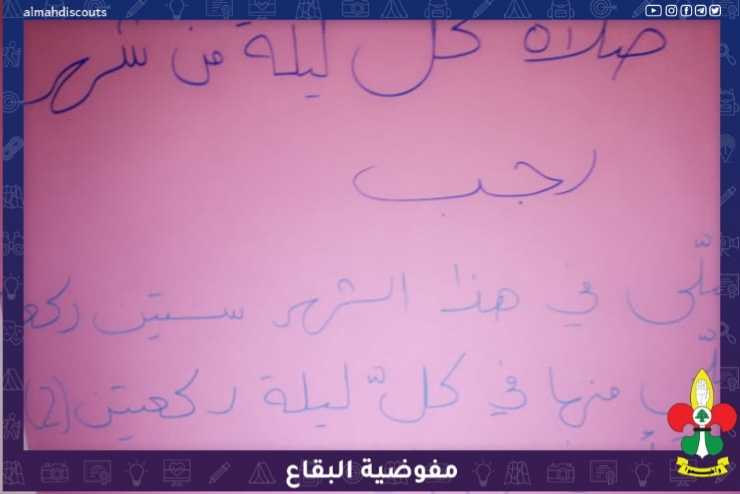 almahdiscouts
صلاة كل ليلة من شهر
رجب
في هذا الشهر ستين
منها في كلّ ليلة ركعتين (2)
مفوضية البقاع